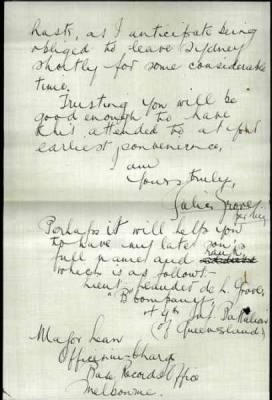 haste, as I anticipate being
obliged to leave Sydney
shortly for some considerable
time.
Trusting you will be
good enough to have
this attended to at your
earliest convenience,
am
Yours truly,
Groves
Perhaps it will help you
to have my late son's
full name and rank
which is as follows:-
Lieut de L. Groves,
"B" Company
Inf. Battalion
(of Queensland)
Major Lean
Officer in Charge
Base Records Office
Melbourne.